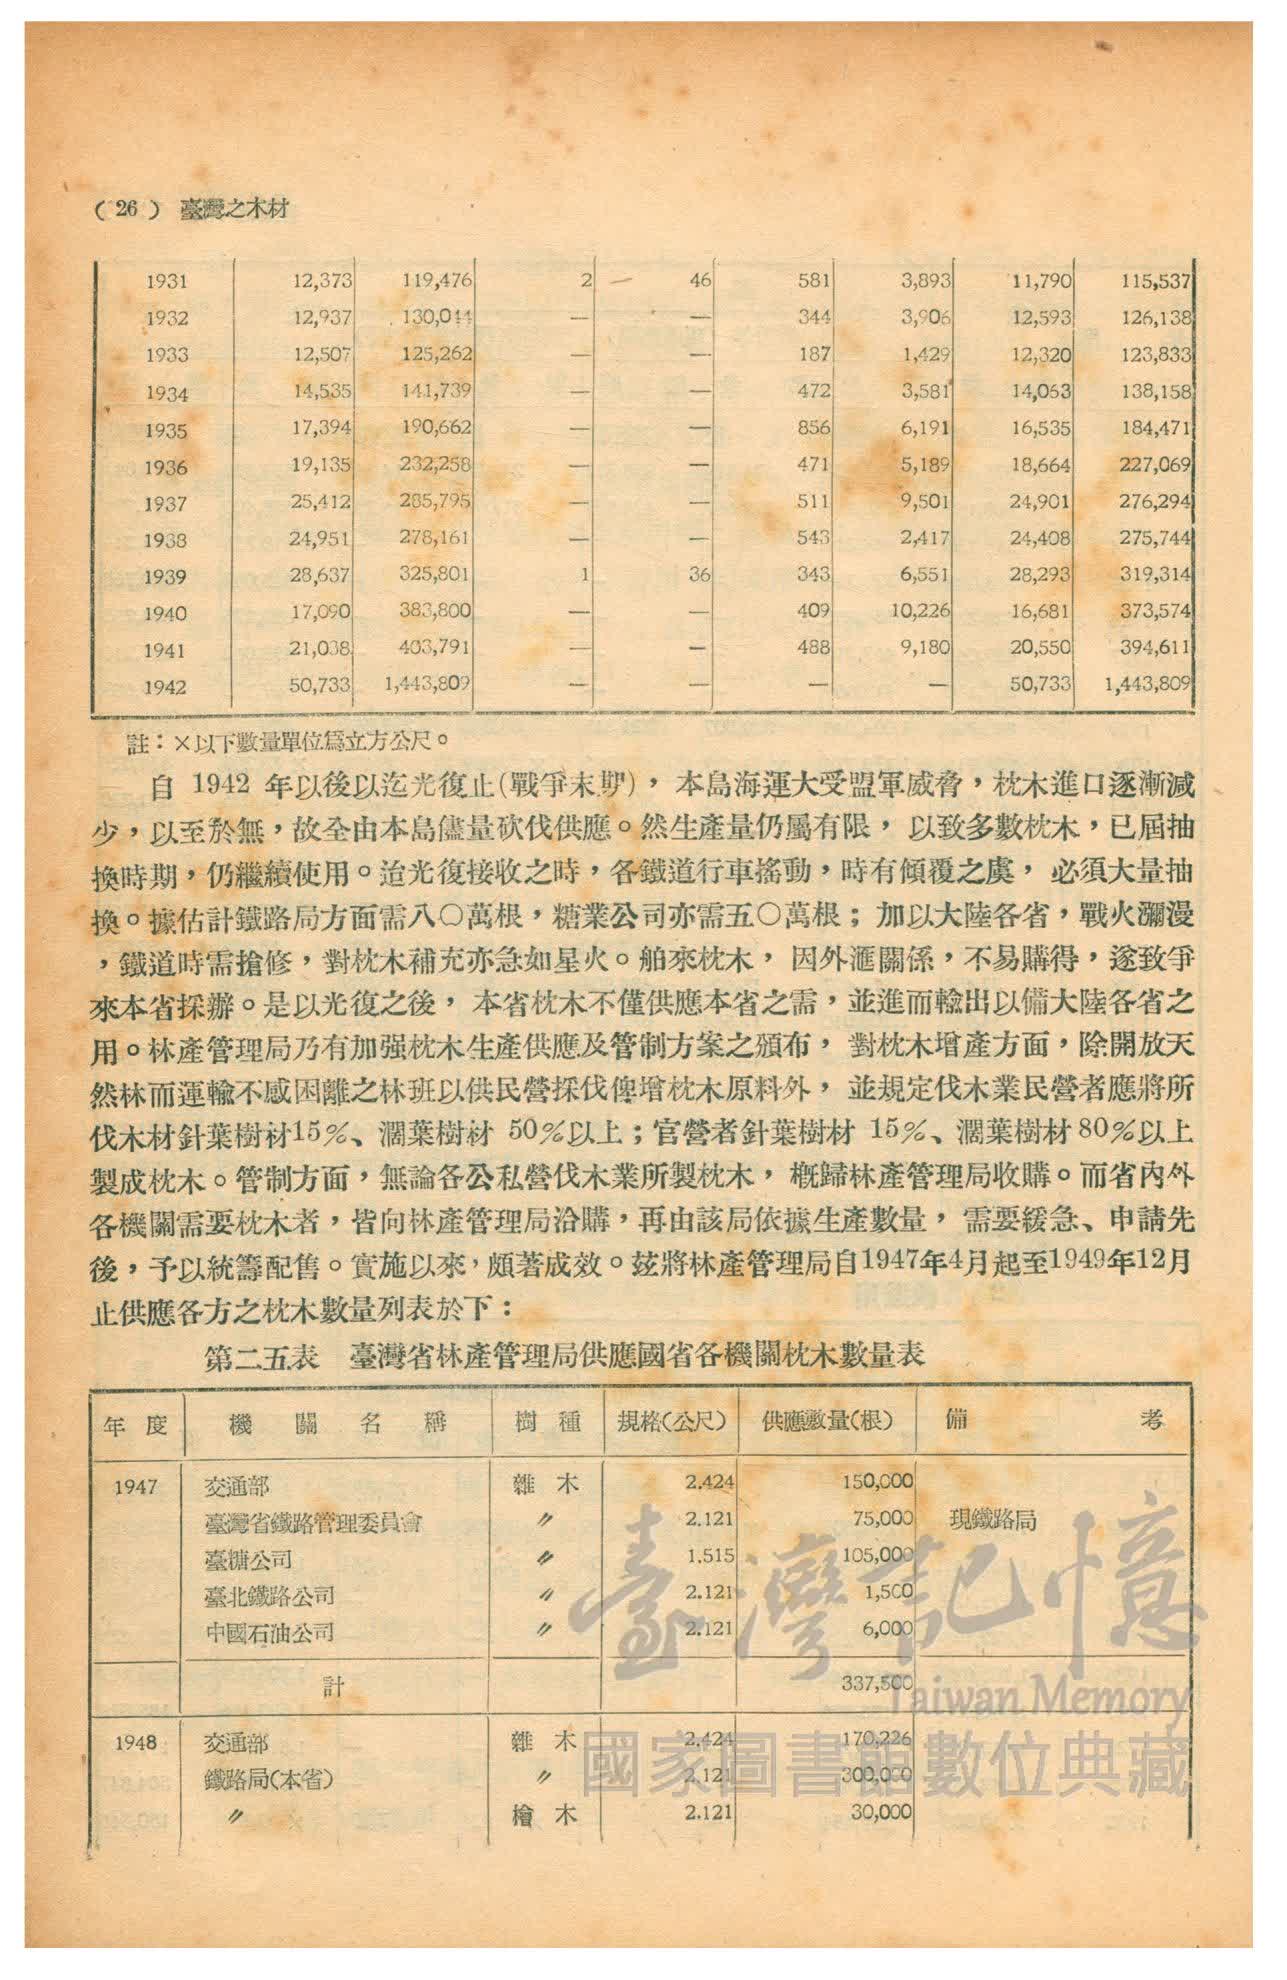 (26) 臺灣之木材
1931 12,373 119,476 2 — 46 581 3,893 11,790 115,537
1932 12,937 130,044 — — 344 3,906 12,593 126,138
1933 12,507 125,262 — — 187 1,429 12,320 123,833
1934 14,535 141,739 — — 472 3,581 14,063 138,158
1935 17,394 190,662 — — 856 6,191 16,535 184,471
1936 19,135 232,258 — — 471 5,189 18,664 227,069
1937 25,412 285,795 — — 511 9,501 24,901 276,294
1938 24,951 278,161 — — 543 2,417 24,408 275,744
1939 28,637 325,801 1 36 343 6,551 28,293 319,314
1940 17,090 383,800 — — 409 10,226 16,681 373,574
1941 21,038 403,791 — — 488 9,180 20,550 394,611
1942 50,733 1,443,809 — — — — 50,733 1,443,809
註：×以下數量單位爲立方公尺。
自 1942 年以後以迄光復止(戰爭末期)，本島海運大受盟軍威脅，枕木進口逐漸減
少，以至於無，故全由本島儘量砍伐供應。然生產量仍屬有限，以致多數枕木，已屆抽
換時期，仍繼續使用。迨光復接收之時，各鐵道行車搖動，時有傾覆之虞，必須大量抽
換。據估計鐵路局方面需八〇萬根，糖業公司亦需五〇萬根；加以大陸各省，戰火瀰漫
，鐵道時需搶修，對枕木補充亦急如星火。舶來枕木，因外滙關係，不易購得，遂致爭
來本省採辦。是以光復之後，本省枕木不僅供應本省之需，並進而輸出以備大陸各省之
用。林產管理局乃有加强枕木生產供應及管制方案之頒布，對枕木增產方面，除開放天
然林而運輸不感困難之林班以供民營採伐俾增枕木原料外，並規定伐木業民營者應將所
伐木材針葉樹材15%、濶葉樹材 50%以上；官營者針葉樹材 15%、濶葉樹材80%以上
製成枕木。管制方面，無論各公私營伐木業所製枕木，概歸林產管理局收購。而省內外
各機關需要枕木者，皆向林產管理局洽購，再由該局依據生產數量，需要緩急、申請先
後，予以統籌配售。實施以來，頗著成效。茲將林產管理局自1947年4月起至1949年12月
止供應各方之枕木數量列表於下：
第二五表 臺灣省林產管理局供應國省各機關枕木數量表
年度 機關名稱 樹種 規格(公尺) 供應數量(根) 備考
1947 交通部 雜木 2.424 150,000
臺灣省鐵路管理委員會 〃 2.121 75,000 現鐵路局
臺糖公司 〃 1.515 105,000
臺北鐵路公司 〃 2.121 1,500
中國石油公司 〃 2.121 6,000
計 337,500
1948 交通部 雜木 2.424 170,226
鐵路局(本省) 〃 2.121 300,000
〃 檜木 2.121 30,000
臺灣記憶
Taiwan Memory
國家圖書館數位典藏